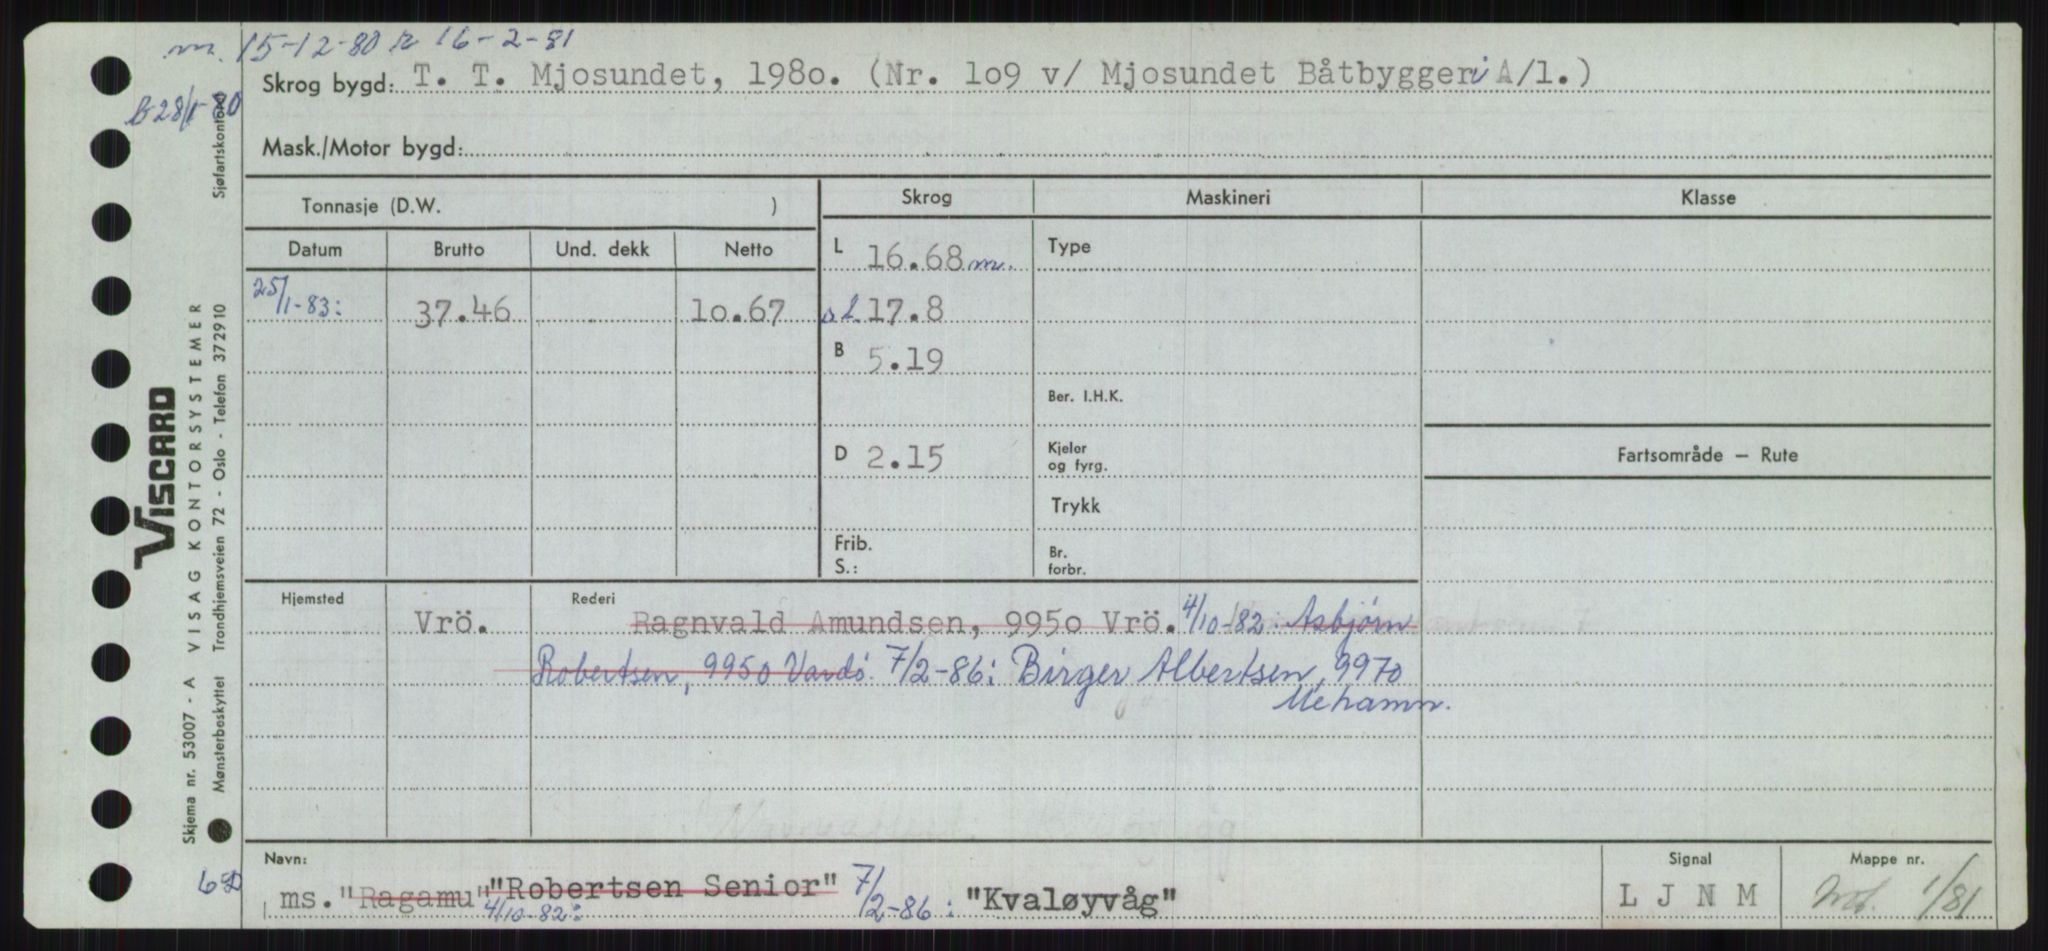 m. 15-12-80 r 16-2-81
Skrog bygd: T. T. Mjosundet, 198o. (Nr. 1o9 v/ Mjosundet Båtbyggeri A/l.)
B 28/1-80
Sjøfartskontoret
Mask./Motor bygd:
Tonnasje (D.W. )
Skrog Maskineri Klasse
Datum Brutto Und. dekk Netto
L 16.68 m. Type
25/1-83: 37.46 1o.67 L 17.8
B 5.19
Ber. I.H.K.
D 2.15 Kjeler og fyrg.
Fartsområde – Rute
Trykk
Frib.
S.:
Br. forbr.
Hjemsted Vrö. Rederi Ragnvald Amundsen, 995o Vrö. 4/10-82: Asbjørn
Robertsen, 9950 Vardö. 7/2-86: Birger Albertsen, 9970
Mehamn.
Navn: ms. "Ragamu" "Robertsen Senior" 7/2-86: "Kvaløyvåg"
4/10-82:
Signal L J N M
Mappe nr. 1/81
VISCARD
Skjema nr. 53007 - A VISAG KONTORSYSTEMER
Mønsterbeskyttet Trondhjemsveien 72 - Oslo - Telefon 372910